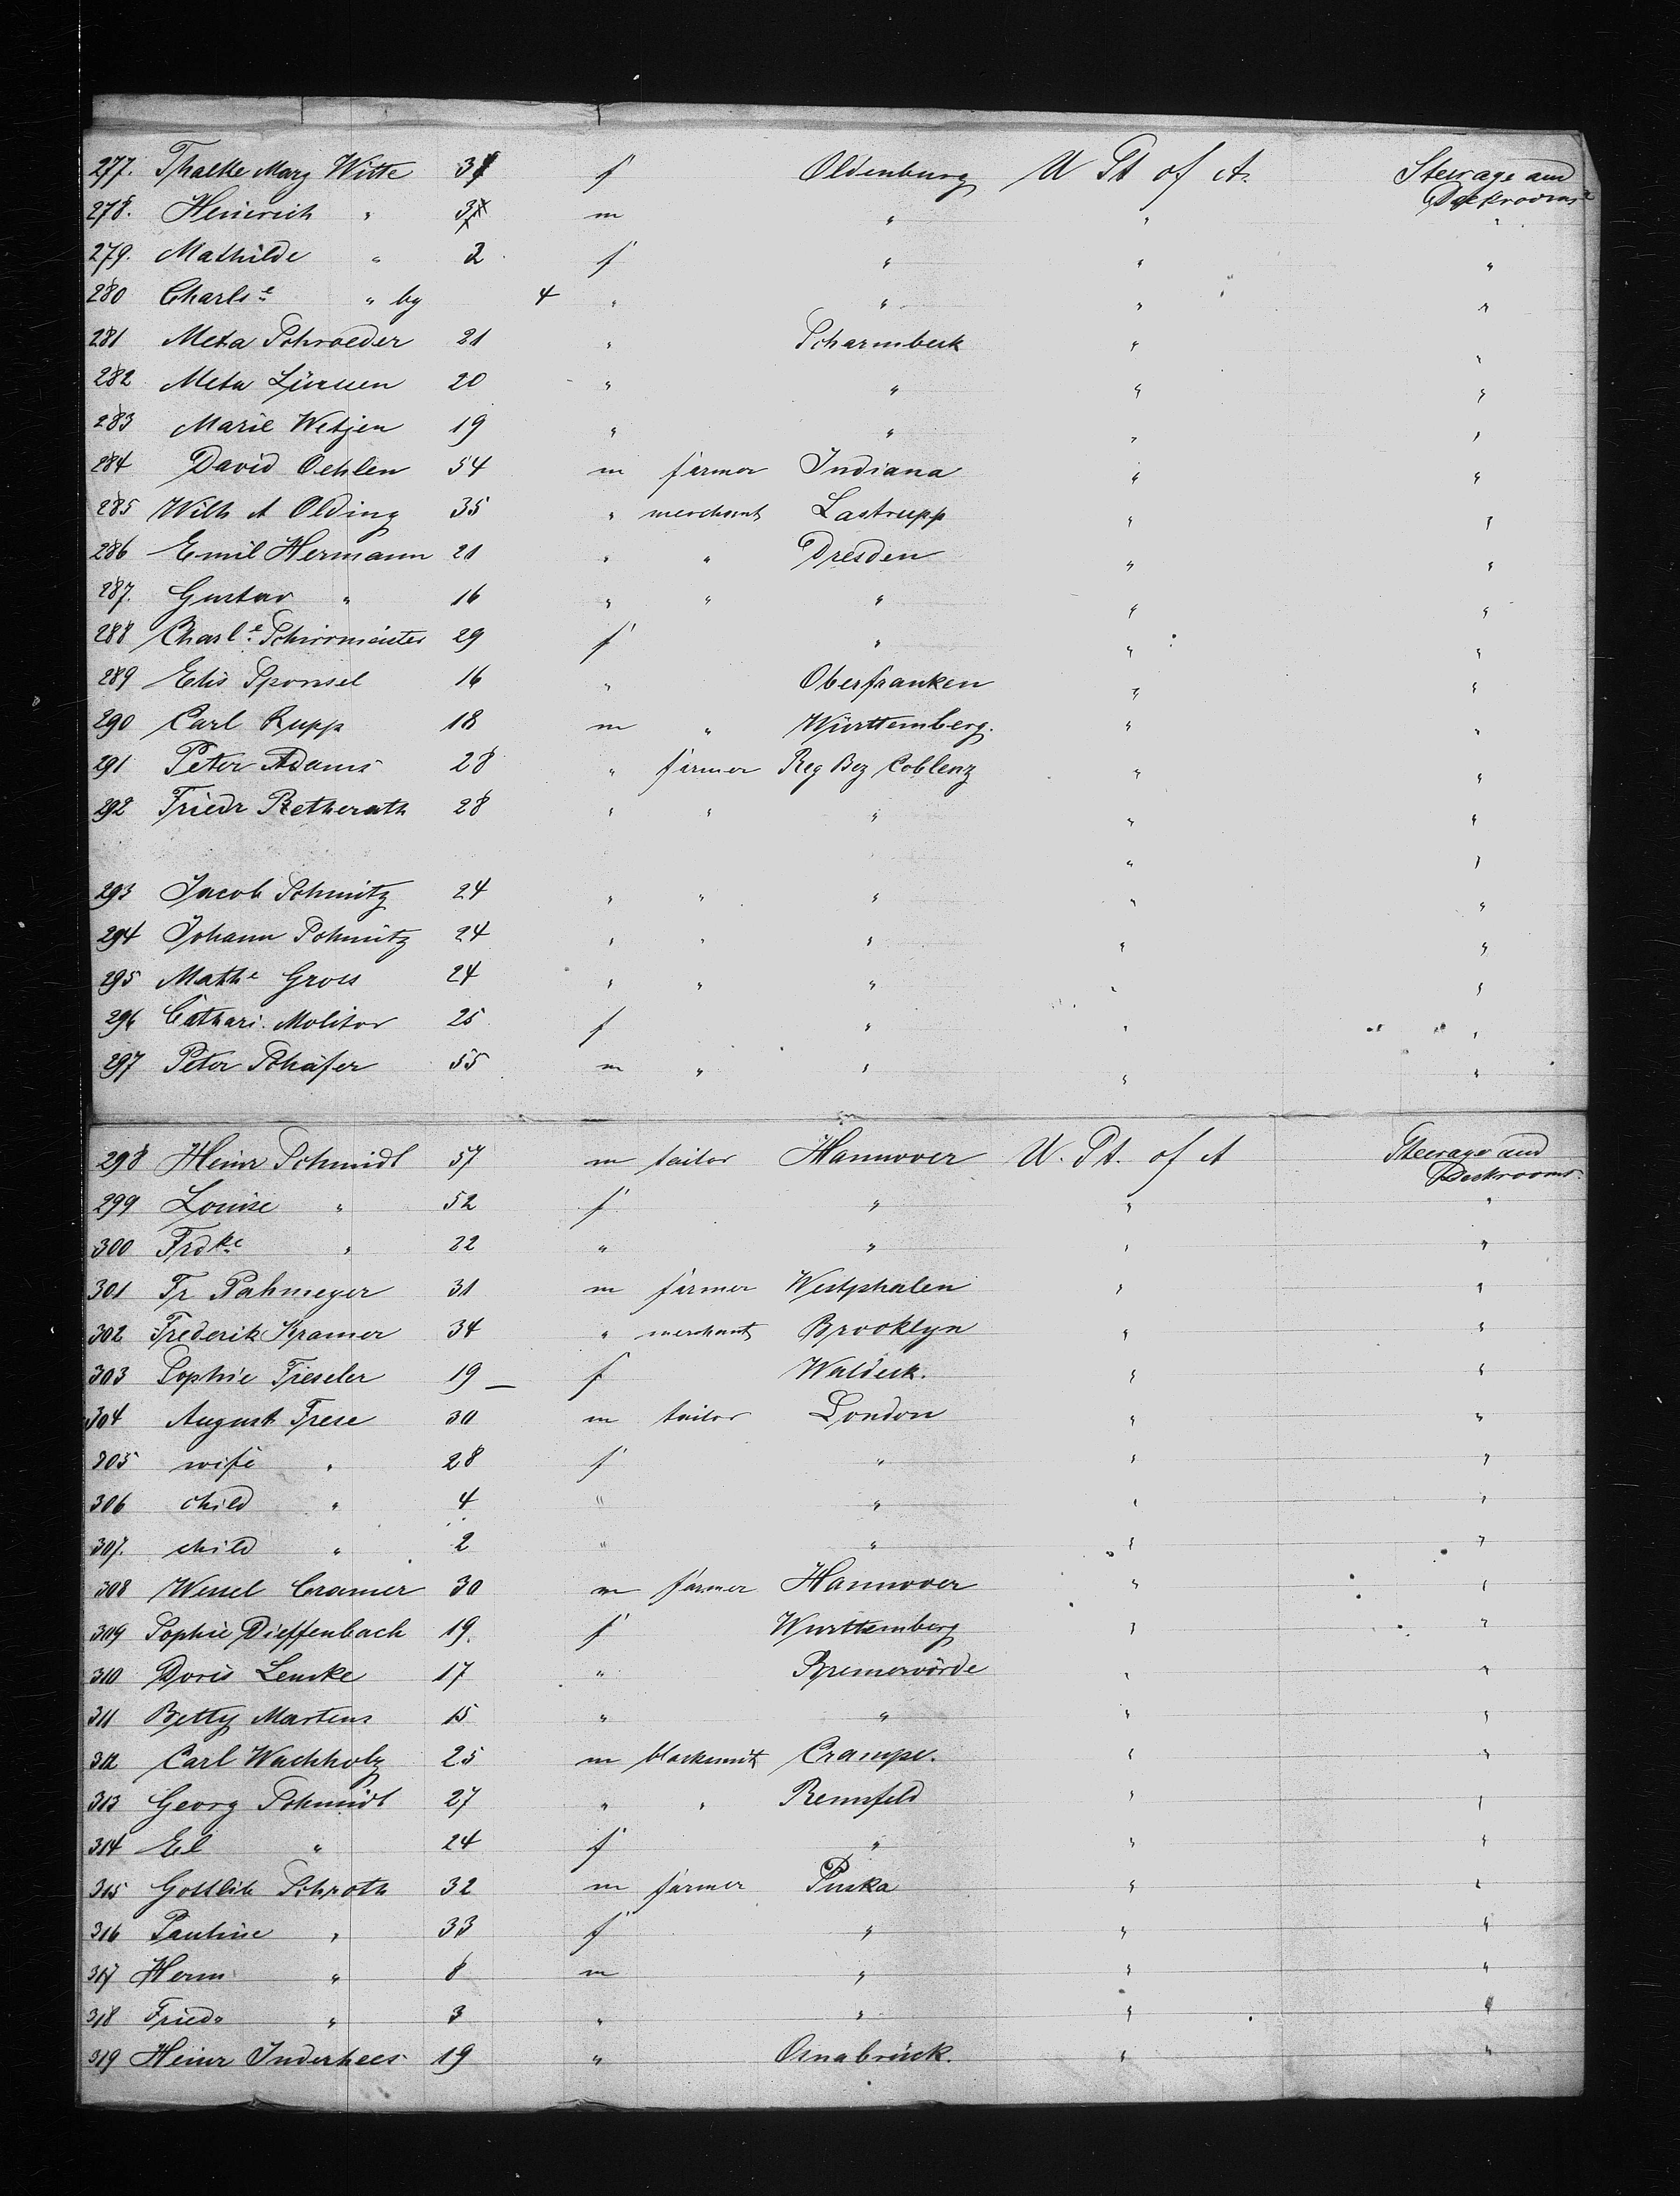 277. Thalke Marg Witte 3 f Oldenburg U St of A. Steerage and
278. Heinrich " 3 m " " Deckrooms "
279. Mathilde " 2 f " " "
280 Charls.e " by 4 " " " "
281 Meta Schroeder 21 " Scharmbeck " "
282 Meta Lürssen 20 " " " "
283 Marie Wetjen 19 " " " "
284 David Oehlen 54 m farmer Indiana " "
285 Wilh A Olding 35 " merchant Lastrupp " "
286 Emil Hermann 21 " " Dresden " "
287. Gustav " 16 " " " " "
288 Charl.e Schirrmeister 29 f " " "
289 Elis Sponsel 16 " Oberfranken " "
290 Carl Rupp 18 m " Württemberg. " "
291 Peter Adams 28 " farmer Reg Bez Coblenz " "
292 Friedr Retherath 28 " " " " "
" "
293 Jacob Schmitz 24 " " " " "
294 Johann Schmitz 24 " " " " "
295 Mathe Gross 24 " " " " "
296 Cathari. Molitor 25 f " " "
297 Peter Schäfer 55 m " " " "
298 Heinr Schmidt 57 m tailor Hannover U. St. of A Steerage and
Deckrooms.
299 Louise " 52 f " " "
300 Frdke " 22 " " " "
301 Fr Pahmeyer 31 m farmer Westphalen " "
302 Frederik Kramer 34 " merchant Brooklyn " "
303 Sophie Fieseler 19 f Waldeck. " "
304 August Frese 30 m tailor London " "
305 wife " 28 f " " "
306 child " 4 " " " "
307. child " 2 " " " "
308 Wessel Cramer 30 m farmer Hannover " "
309 Sophie Dieffenbach 19. f Wurttemberg " "
310 Doris Lemke 17 " Bremervörde " "
311 Betty Martens 15 " " " "
312 Carl Wachholz 25 m blacksmit Crampe. " "
313 Georg Schmidt 27 " " Rennfeld " "
314 El " 24 f " " "
315 Gottlib Schroth 32 m farmer Puska " "
316 Pauline " 33 f " " "
317 Herm " 8 m " " "
318 Friedr " 3 " " " "
319 Heinr Inderhees 19 " Osnabrück. " "